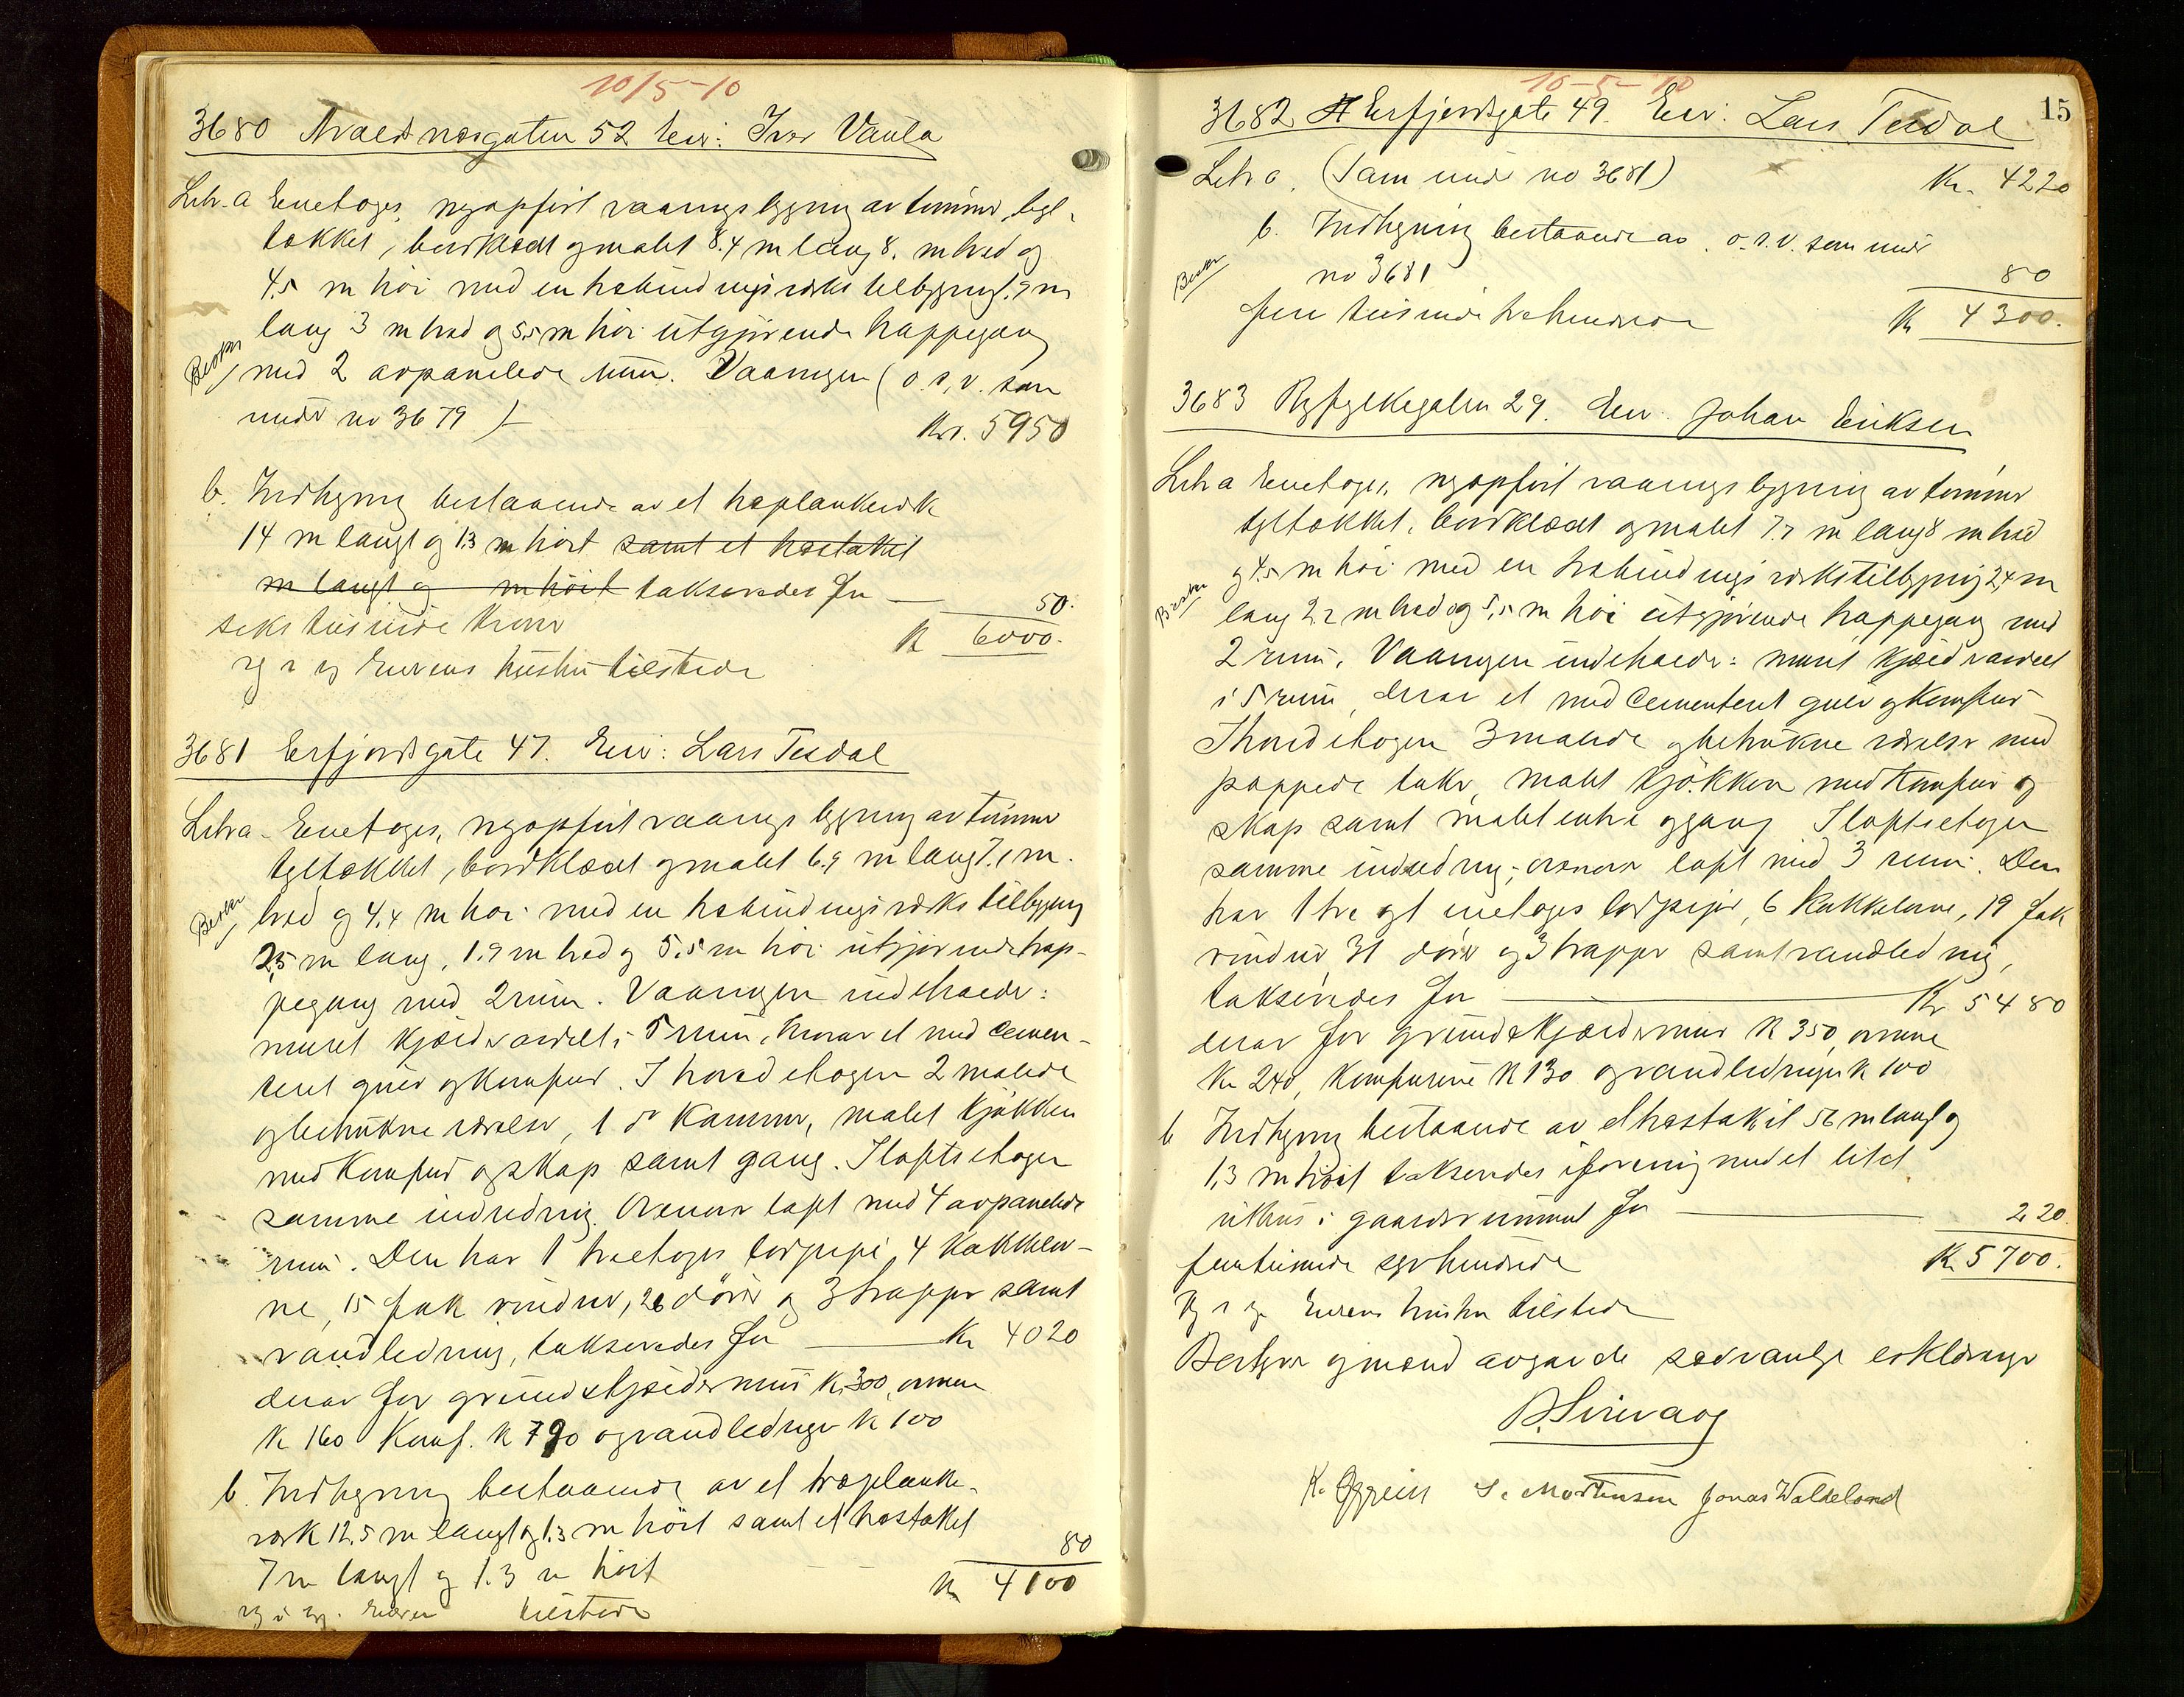 10/5-10
3680 Avaldsnesgaten 52 Eier: Iver Vaula
Litr. a Eenetages, nyopført vaaningsbygning av tømmer, tegl-
tækket, bordklædt og malet 8.4 m lang 8. m bred og
4.5 m høi med en trebindingsverks tilbygning
lang 3 m bred og 5.5 m høi utgjørende trappegang
med 2 avpanelede rum. Vaaningen (o.s.v. som
under no 3679)
Kr. 5950
b. Indhegning bestaaende av et træplankeverk
14 m langt og 1.3 m høit samt et træstaket
m langt og m høit takseredes for — 50.
seks tusinde kroner K 6000.
Eierens hustru tilstede
3681 Erfjordsgate 47. Eier: Lars Tesdal
Litr a Eenetages, nyopført vaaningsbygning av tømmer
tegltækket, bordklædt og malet 6.9 m lang 7.1 m.
bred og 4.4 m høi med en trebindingsverks tilbygning
2,5 m lang, 1.9 m bred og 5.5 m høi utgjørende trap-
pegang med 2 rum. Vaaningen indeholder:
muret kjælder avdelt i 5 rum, hvorav et med cemen-
teret gulv og komfur. I hovedetagen 2 malede
og betrukne værelser, 1 do kammer, malet kjøkken
med komfur og skap samt gang. I loftsetagen
samme indredning. Ovenover loft med 4 avpanelede
rum. Den har 1 tretages teglpipe, 4 kakkelov-
ne, 15 fak vinduer, 26 dører og 3 trapper samt
vandledning, takseredes for — Kr 4020
derav for grund & kjældermur Kr. 300, ovnene
K 160 Komf. K 790 og vandledningen K 100
b. Indhegning bestaaende av et træplanke-
verk 12.5 m langt og 1.3 m høit samt et træstaket
7 m langt og 1.3 m høit 80
Kr 4100
Eieren tilstede
10-5-10
15
3682 Erfjordsgate 49. Eier: Lars Tesdal
Litr a. (Som under no 3681) Kr. 4220
b. Indhegning bestaaende av o.s.v. som under
no 3681 80
fire tusinde trehundrede K 4300.
3683 Ryfylkegaten 29. Eier: Johan Eriksen
Litr a Eenetages, nyopført vaaningsbygning av tømmer
tegltækket, bordklædt og malet 7.7 m lang 8 m bred
og 4.5 m høi med en trebindingsverkstilbygning 2,4 m
lang 2.2 m bred og 5,5 m høi utgjørende trappegang med
2 rum. Vaaningen indeholder: muret kjælder avdelt
i 5 rum, derav et med cementeret gulv og komfur
I hovedetagen 3 malede og betrukne værelser med
pappede taker, malet kjøkken med komfur og
skap samt malet entre og gang I loftsetagen
samme indredning, ovenover loft med 3 rum. Den
har 1 tre og 1 enetages teglpiper, 6 kakkelovne, 19 fak
vinduer, 31 dører og 3 trapper samt vandledning,
takseredes for — Kr 5480
derav for grund & kjældermur K 350, ovnene
Kr 240, komfurene K 130 og vandledningen K 100
b Indhegning bestaaende av et træstakit 56 m langt og
1,3 m høit takseredes i forening med et litet
uthus i gaardsrummet for — 220
femtusinde syvhundrede K. 5700.
Eierens hustru tilstede
Bestyrer og mænd avgav de sædvanlige erklæringer
K. S. Mortensen Jonas Waldeland